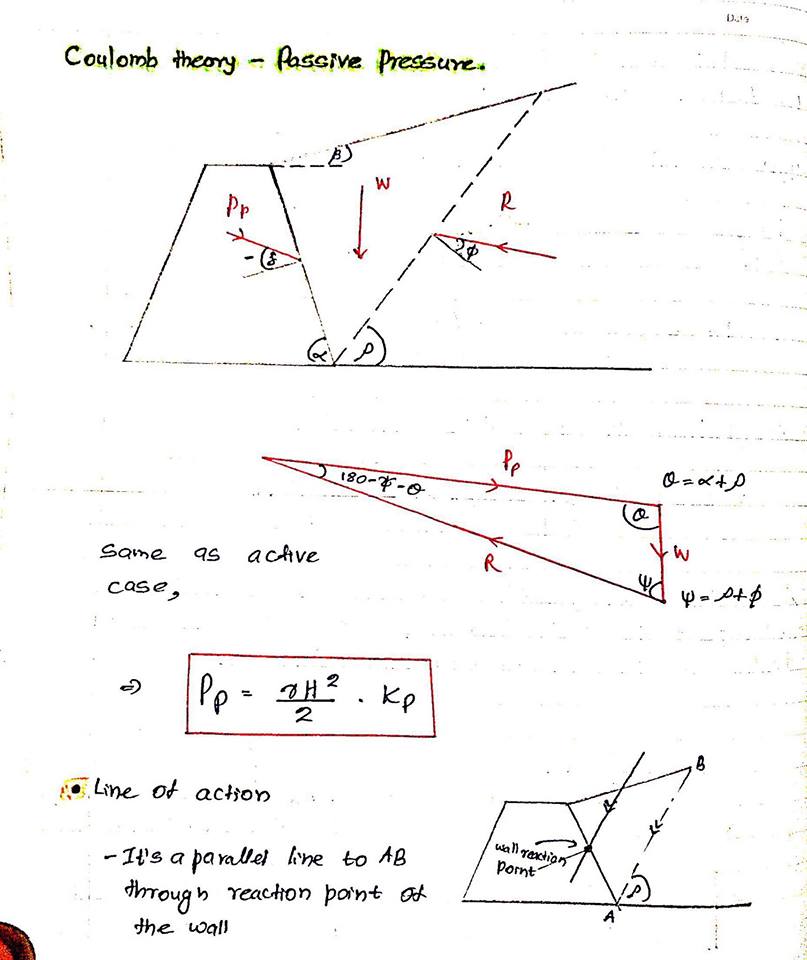 Date
Coulomb theory - Passive Pressure.
β
W
Pp
R
-δ
φ
α
ρ
Pp
180-ψ-θ
θ = α+ρ
θ
W
R
ψ
ψ = ρ+φ
Same as active
case,
⇒ Pp = γH²/2 . Kp
Line of action
- It's a parallel line to AB
through reaction point of
the wall
B
wall reaction
point
ρ
A